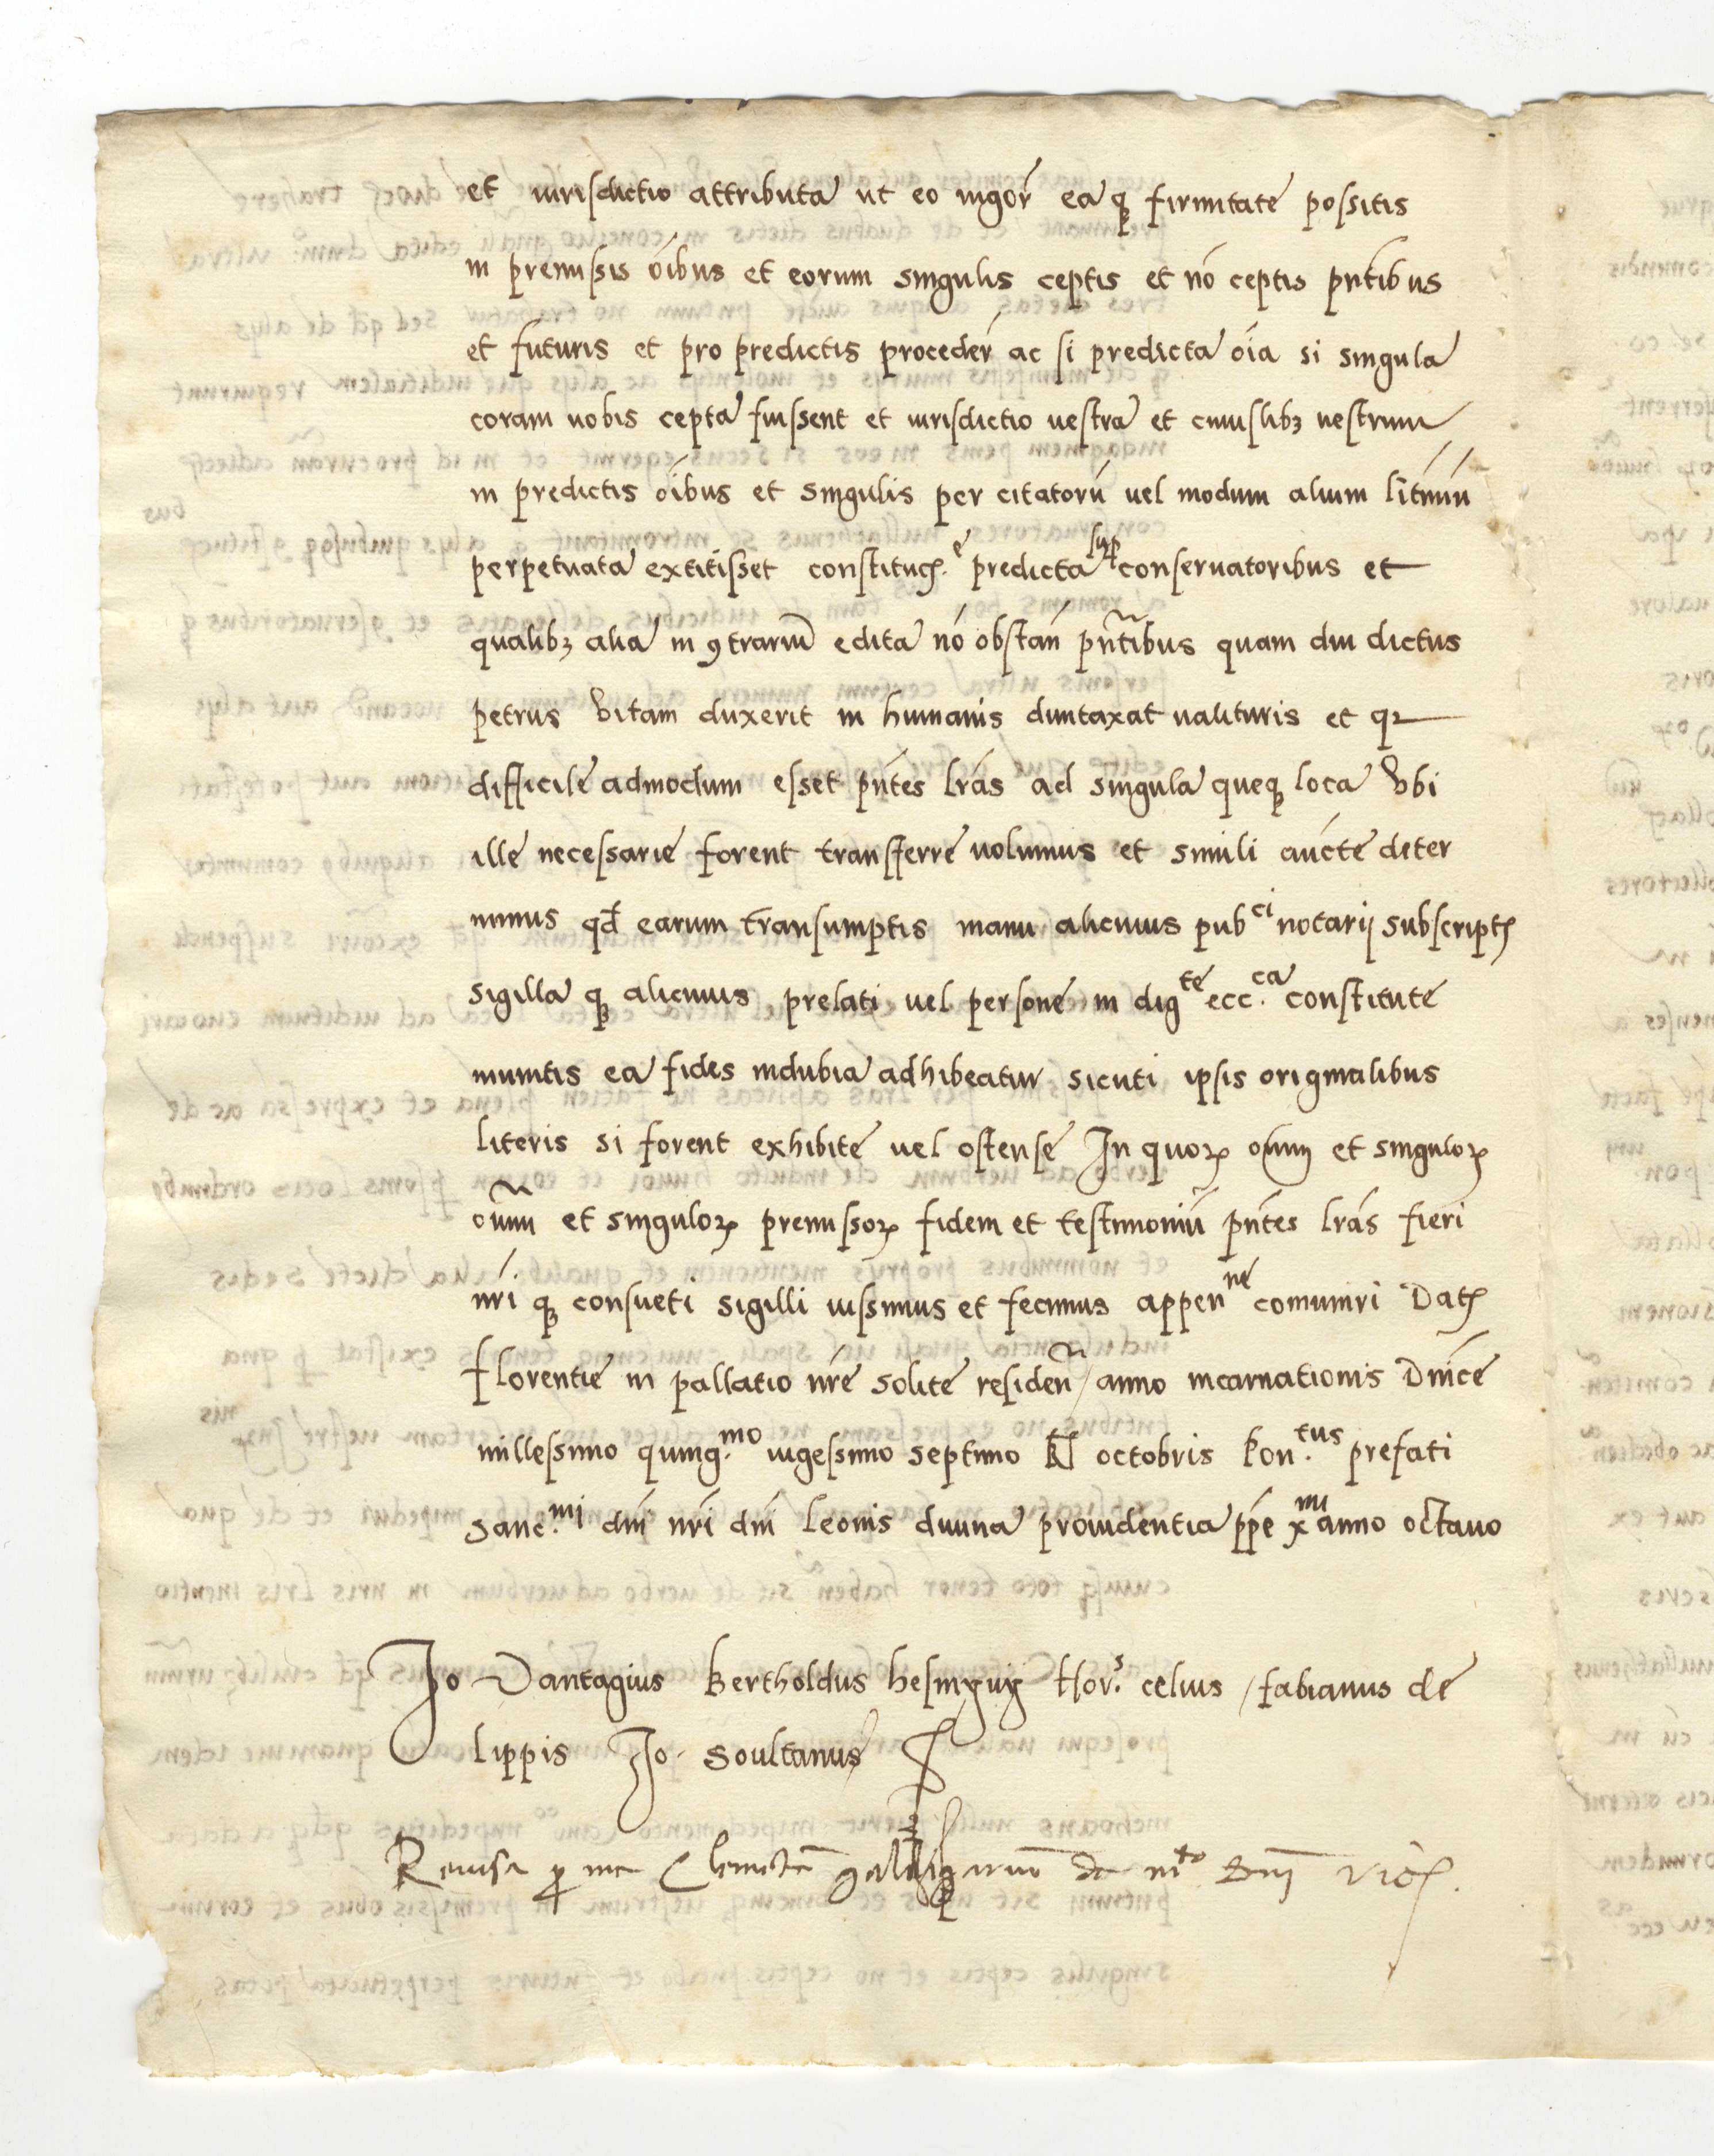 et iurisdictio attributa ut eo uigor̃ ea qꝫ firmitate possitis
in premissis oĩbus et eorum singulis ceptis et nõ ceptis pñtibus
et futuris et pro predictis proceder̃ ac si predicta oĩa si singula
coram uobis cepta fuissent et iurisdictio uestra et cuiuslibꝫ uestrum
in predictis oĩbus et singulis per citatorũ uel modum alium lĩtmũ
perpetuata extitisset constitucꝭ. e predicta sup conseruatoribus et
qualibꝫ alia in ꝯtrariũ edita nõ obstañ pñtibus quam diu dictus
petrus vitam duxerit in humanis duntaxat ualituris et qꝛ
difficile admodum esset pñtes lrãs ad singula queqꝫ loca vbi
ille necessarie forent transferre uolumus et simili aucte deter
minus qđ earum transumptis manu alicuius pubci notarij subscriptꝭ
sigilla qꝫ alicuius prelati uel persone in digte ecc.ca constitute
munitis ea fides indubia adhibeatur sicuti ipsis originalibus
literis si forent exhibite uel ostense In quoꝝ oĩum et singuloꝝ
oĩum et singuloꝝ premissoꝝ fidem et testimoniũ pñtes lrãs fieri
nrĩ qꝫ consueti sigilli iussimus et fecimus appenne comuniri Datꝭ
florentie in pallatio nrẽ solite resideñ / anno incarnationis Dñice
millessimo quing.mo uigessimo septimo kl octobris Pon.tus prefati
Sanc.mi dñi nrĩ dñi Leonis diuina prouidentia ppẽ x mi anno octauo
Jo Dantagius Bertholdus Hor.s celius / fabianus de
lippis Jo. Soultanus
Reuisa ꝓ me de mto dñi